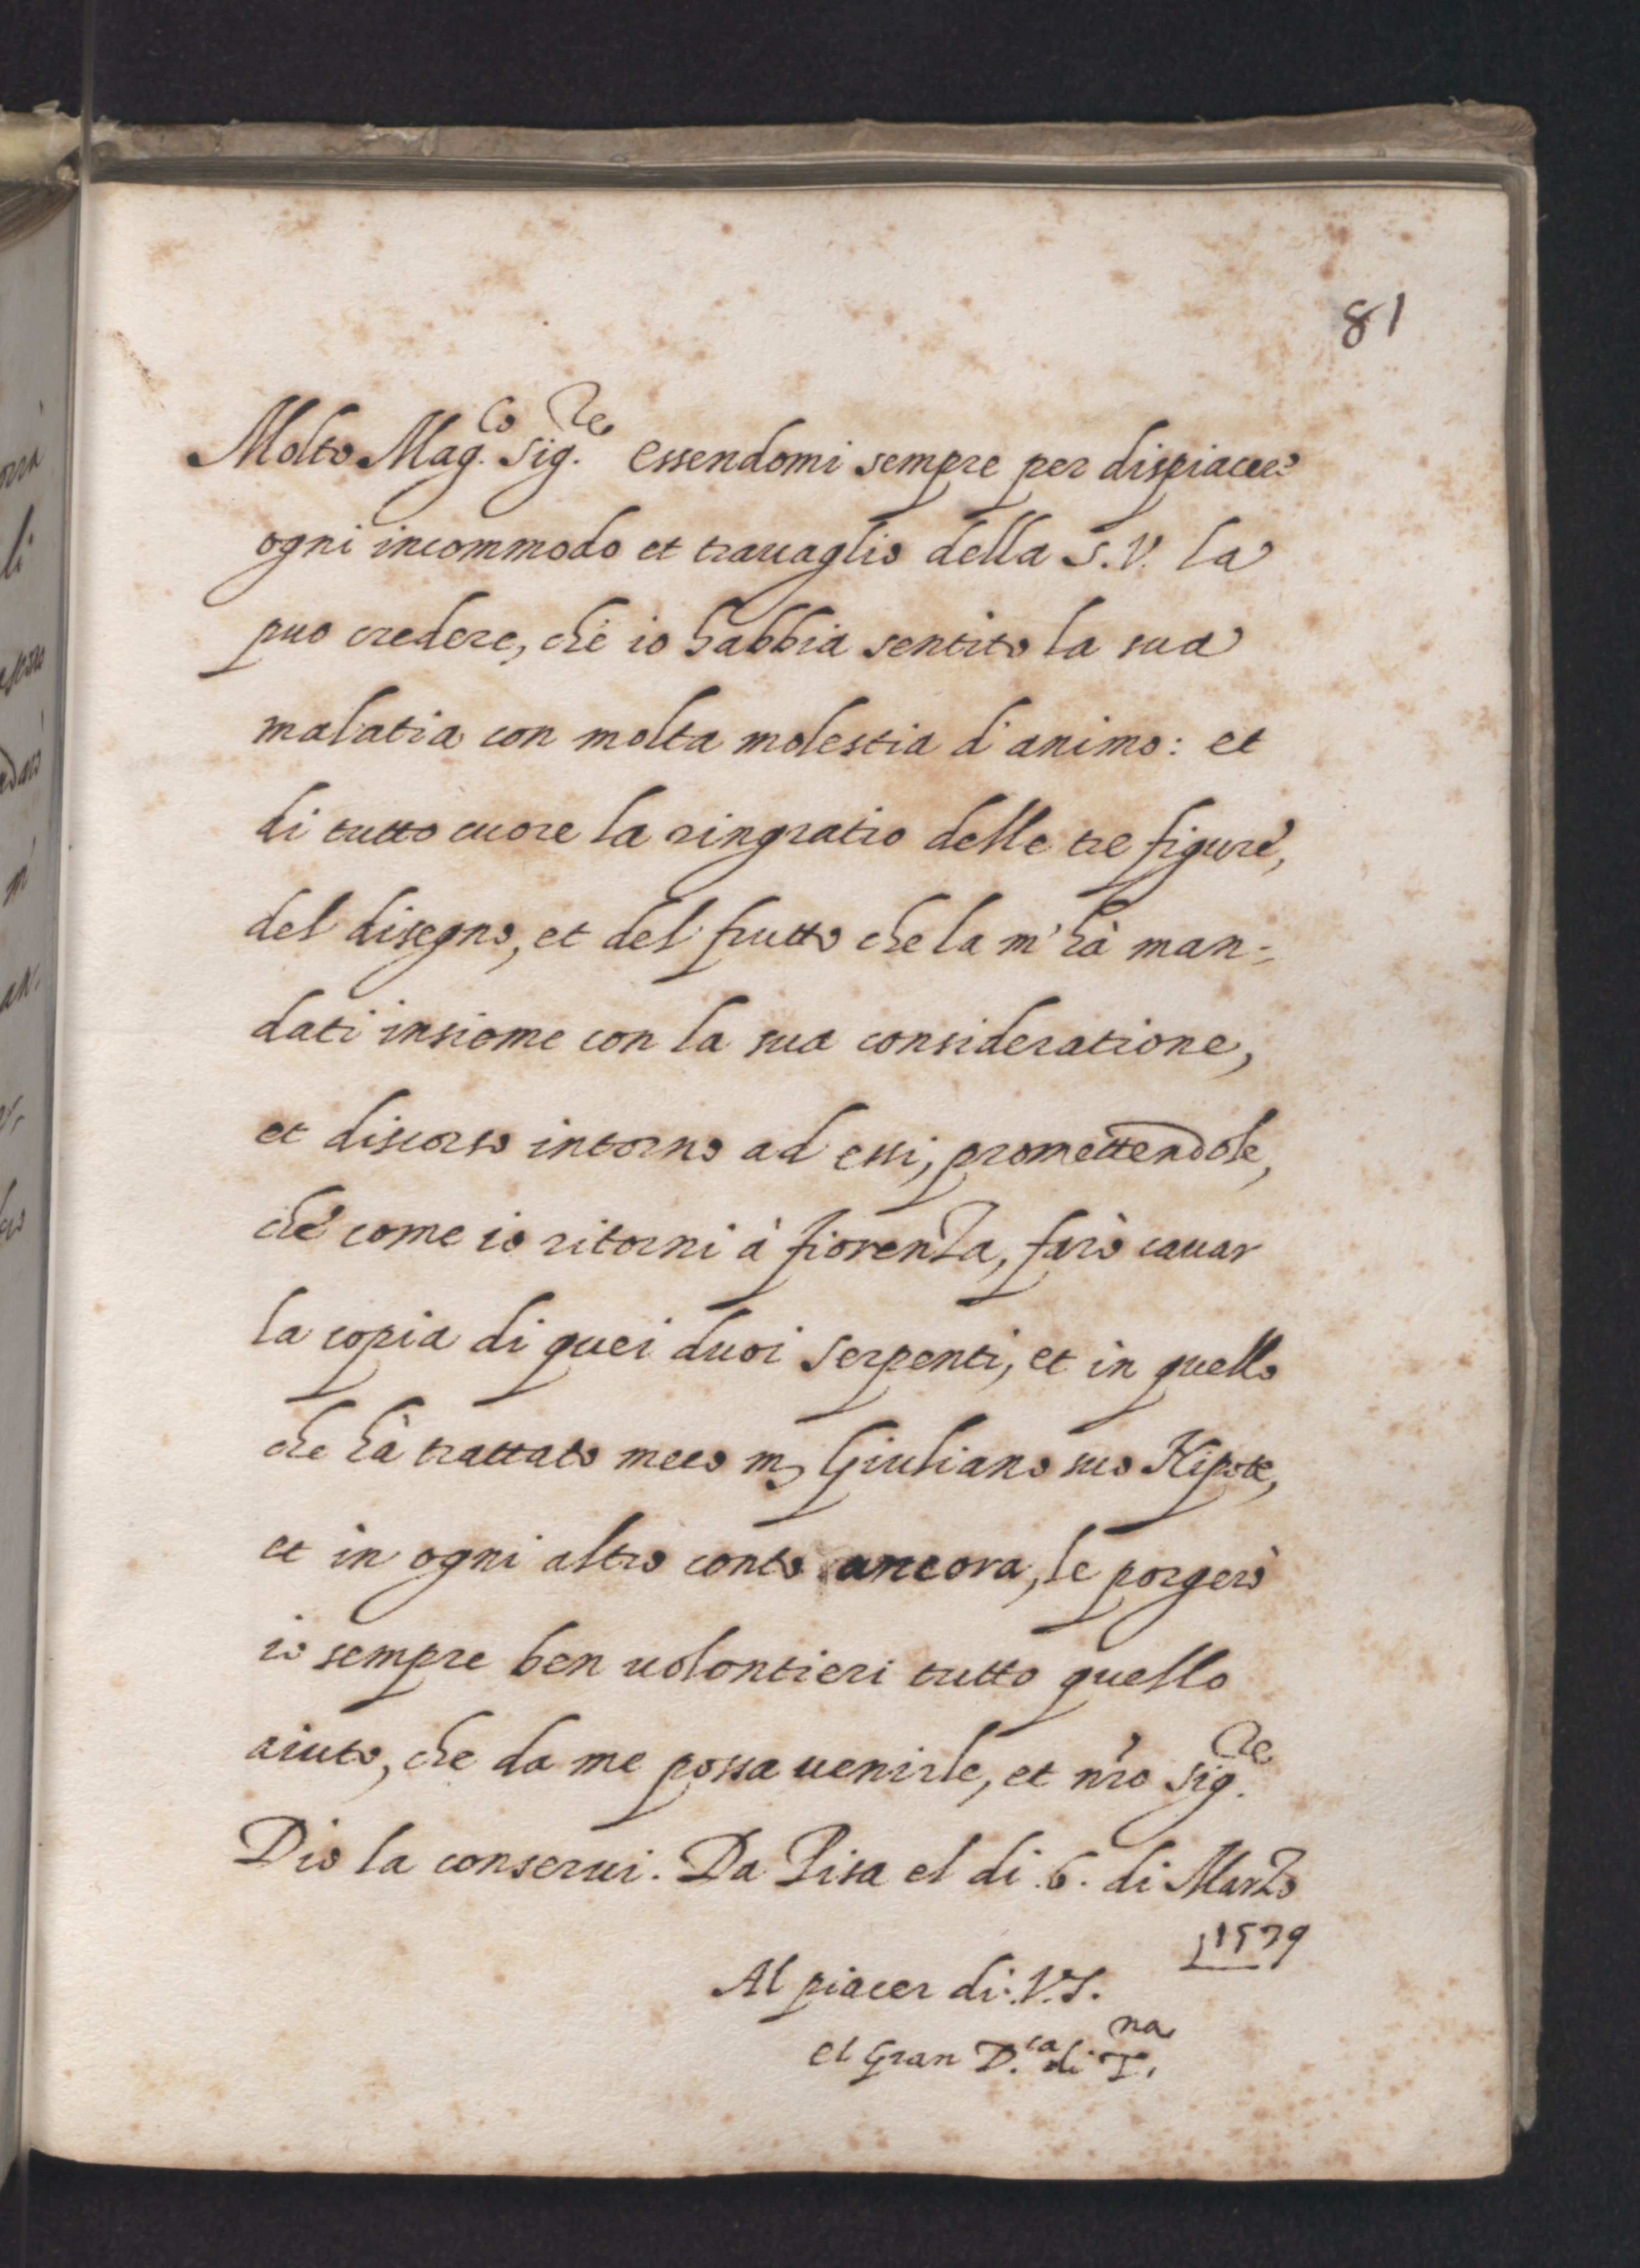 81
Molto Mag.co Sig.re essendomi sempre per dispiacere
ogni incommodo et trauaglio della S.V. la
puo credere, che io habbia sentito la sua
malatia con molta molestia d'animo: et
di tutto cuore la ringratio delle tre figure,
del disegno, et del frutto che la m'hà man-
dati insieme con la sua consideratione,
et discorso intorno ad essi, promettendole,
che come io ritorni à fiorenza, farò cauar
la copia di quei duoi serpenti, et in quello
che hà trattato meco m Giuliano suo Nipote,
et in ogni altro conto ancora, le porgerò
io sempre ben uolontieri tutto quello
aiuto, che da me possa uenirle, et nro Sig.re
Dio la conserui. Da Pisa el di .6. di Marzo
1579
Al piacer di .V.S.
el Gran D.ca di T.na